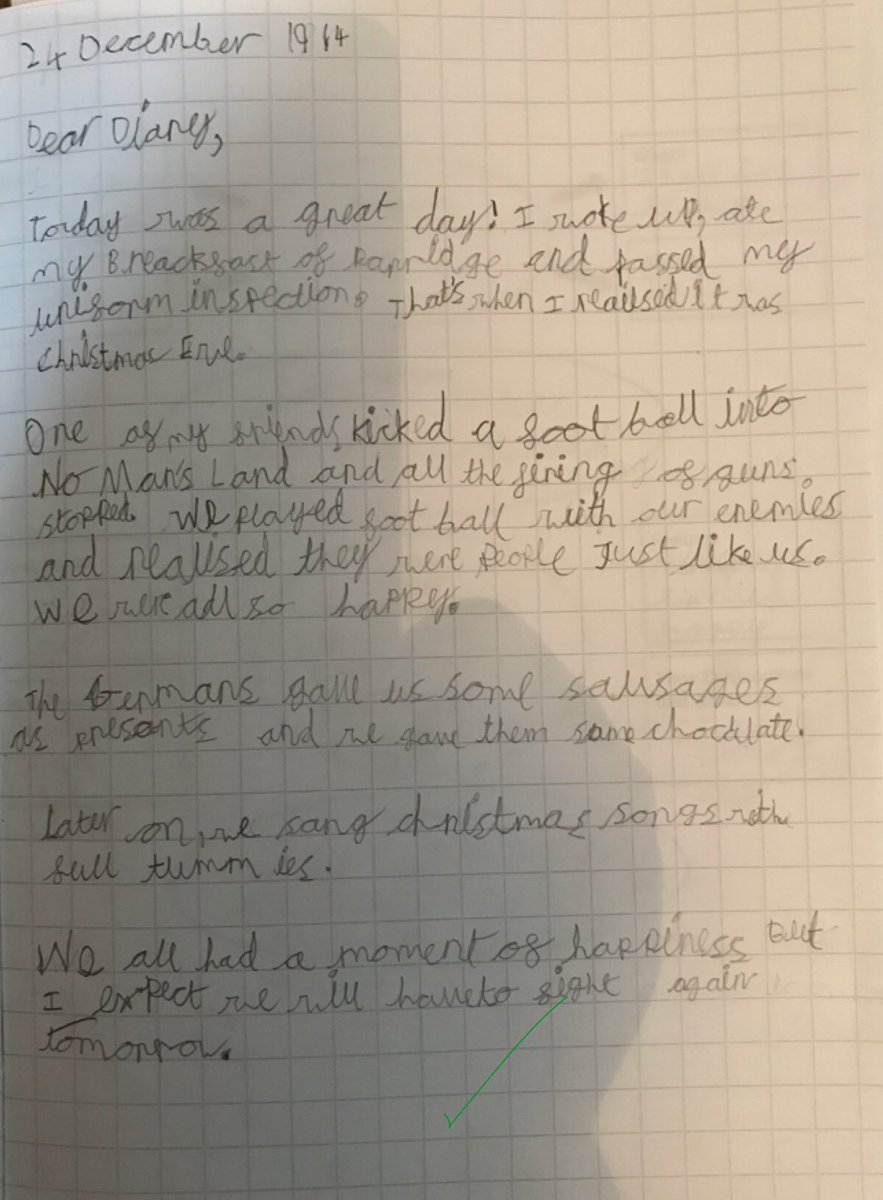 24 December 1914
Dear Diarey,
Today was a great day! I woke up, ate
my Breackfast of Parridge and passed my
uniform inspection. That's when I reailsed it was
christmas Eve.
One of my friends kicked a foot ball into
No Man's Land and all the firing of guns.
stopped. We played foot ball with our enemies
and realised they were people Just like us.
We were all so happy.
The Germans gave us some sausages
as presants and we gave them some chocklate.
Later on, we sang christmas songs with
full tummies.
We all had a moment of happiness But
I expect we will have to fight again
tomorrow.